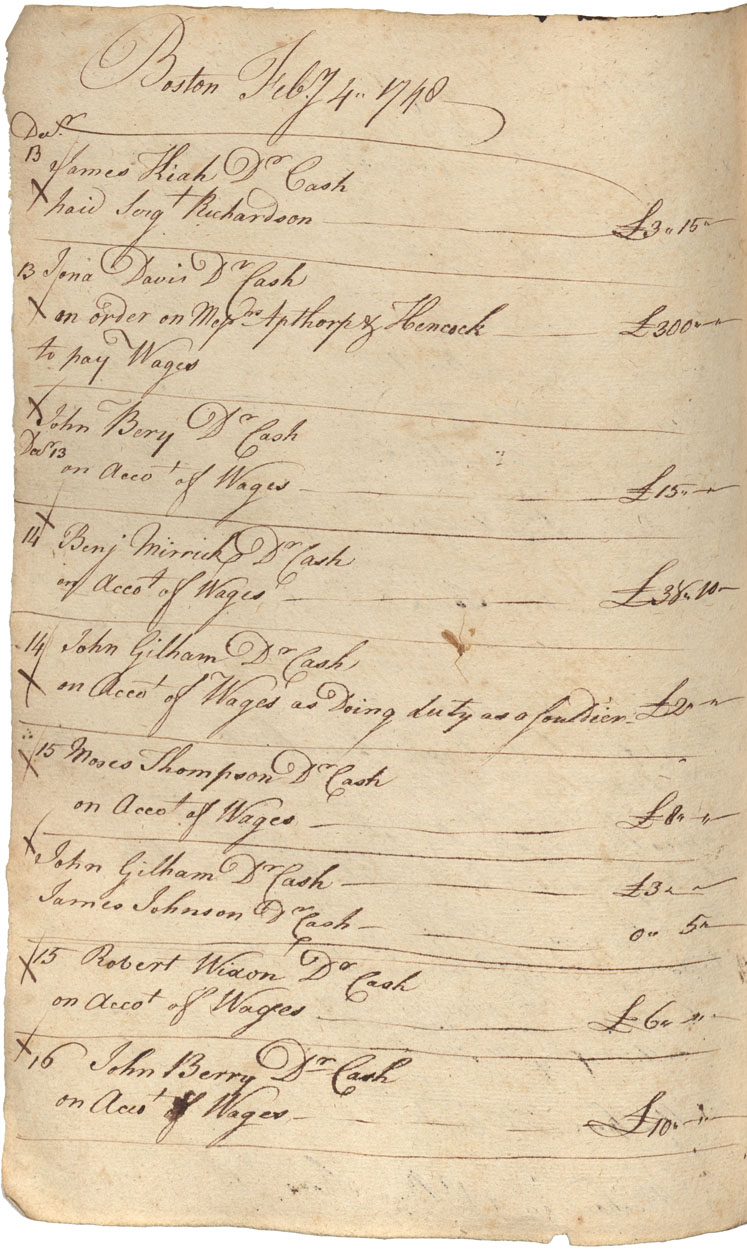 Boston Feby 4" 1748
Decr
13 James Kiah Dr Cash
X paid Sergt Richardson £3" 15"
13 Jona Davis Dr Cash
X on order on Messrs Apthorp & Hencock £300" "
to pay Wages
X John Bery Dr Cash
Decr 13
on Accot of Wages £15" "
X
14 Benj Mirrick Dr Cash
on Accot of Wages £38" 10
14 John Gilham Dr Cash
X on Accot of Wages as Doing duty as a Souldier £2" "
X 15 Moses Thompson Dr Cash
on Accot of Wages £8" "
X John Gilham Dr Cash £3" "
James Johnson Dr Cash 0" 5"
X 15 Robert Wixon Dr Cash
on Accot of Wages £6" "
X 16 John Berry Dr Cash
on Accot of Wages £10" "